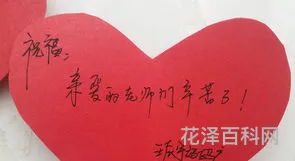 祝福：
亲爱的老师们辛苦了！
花泽百科网